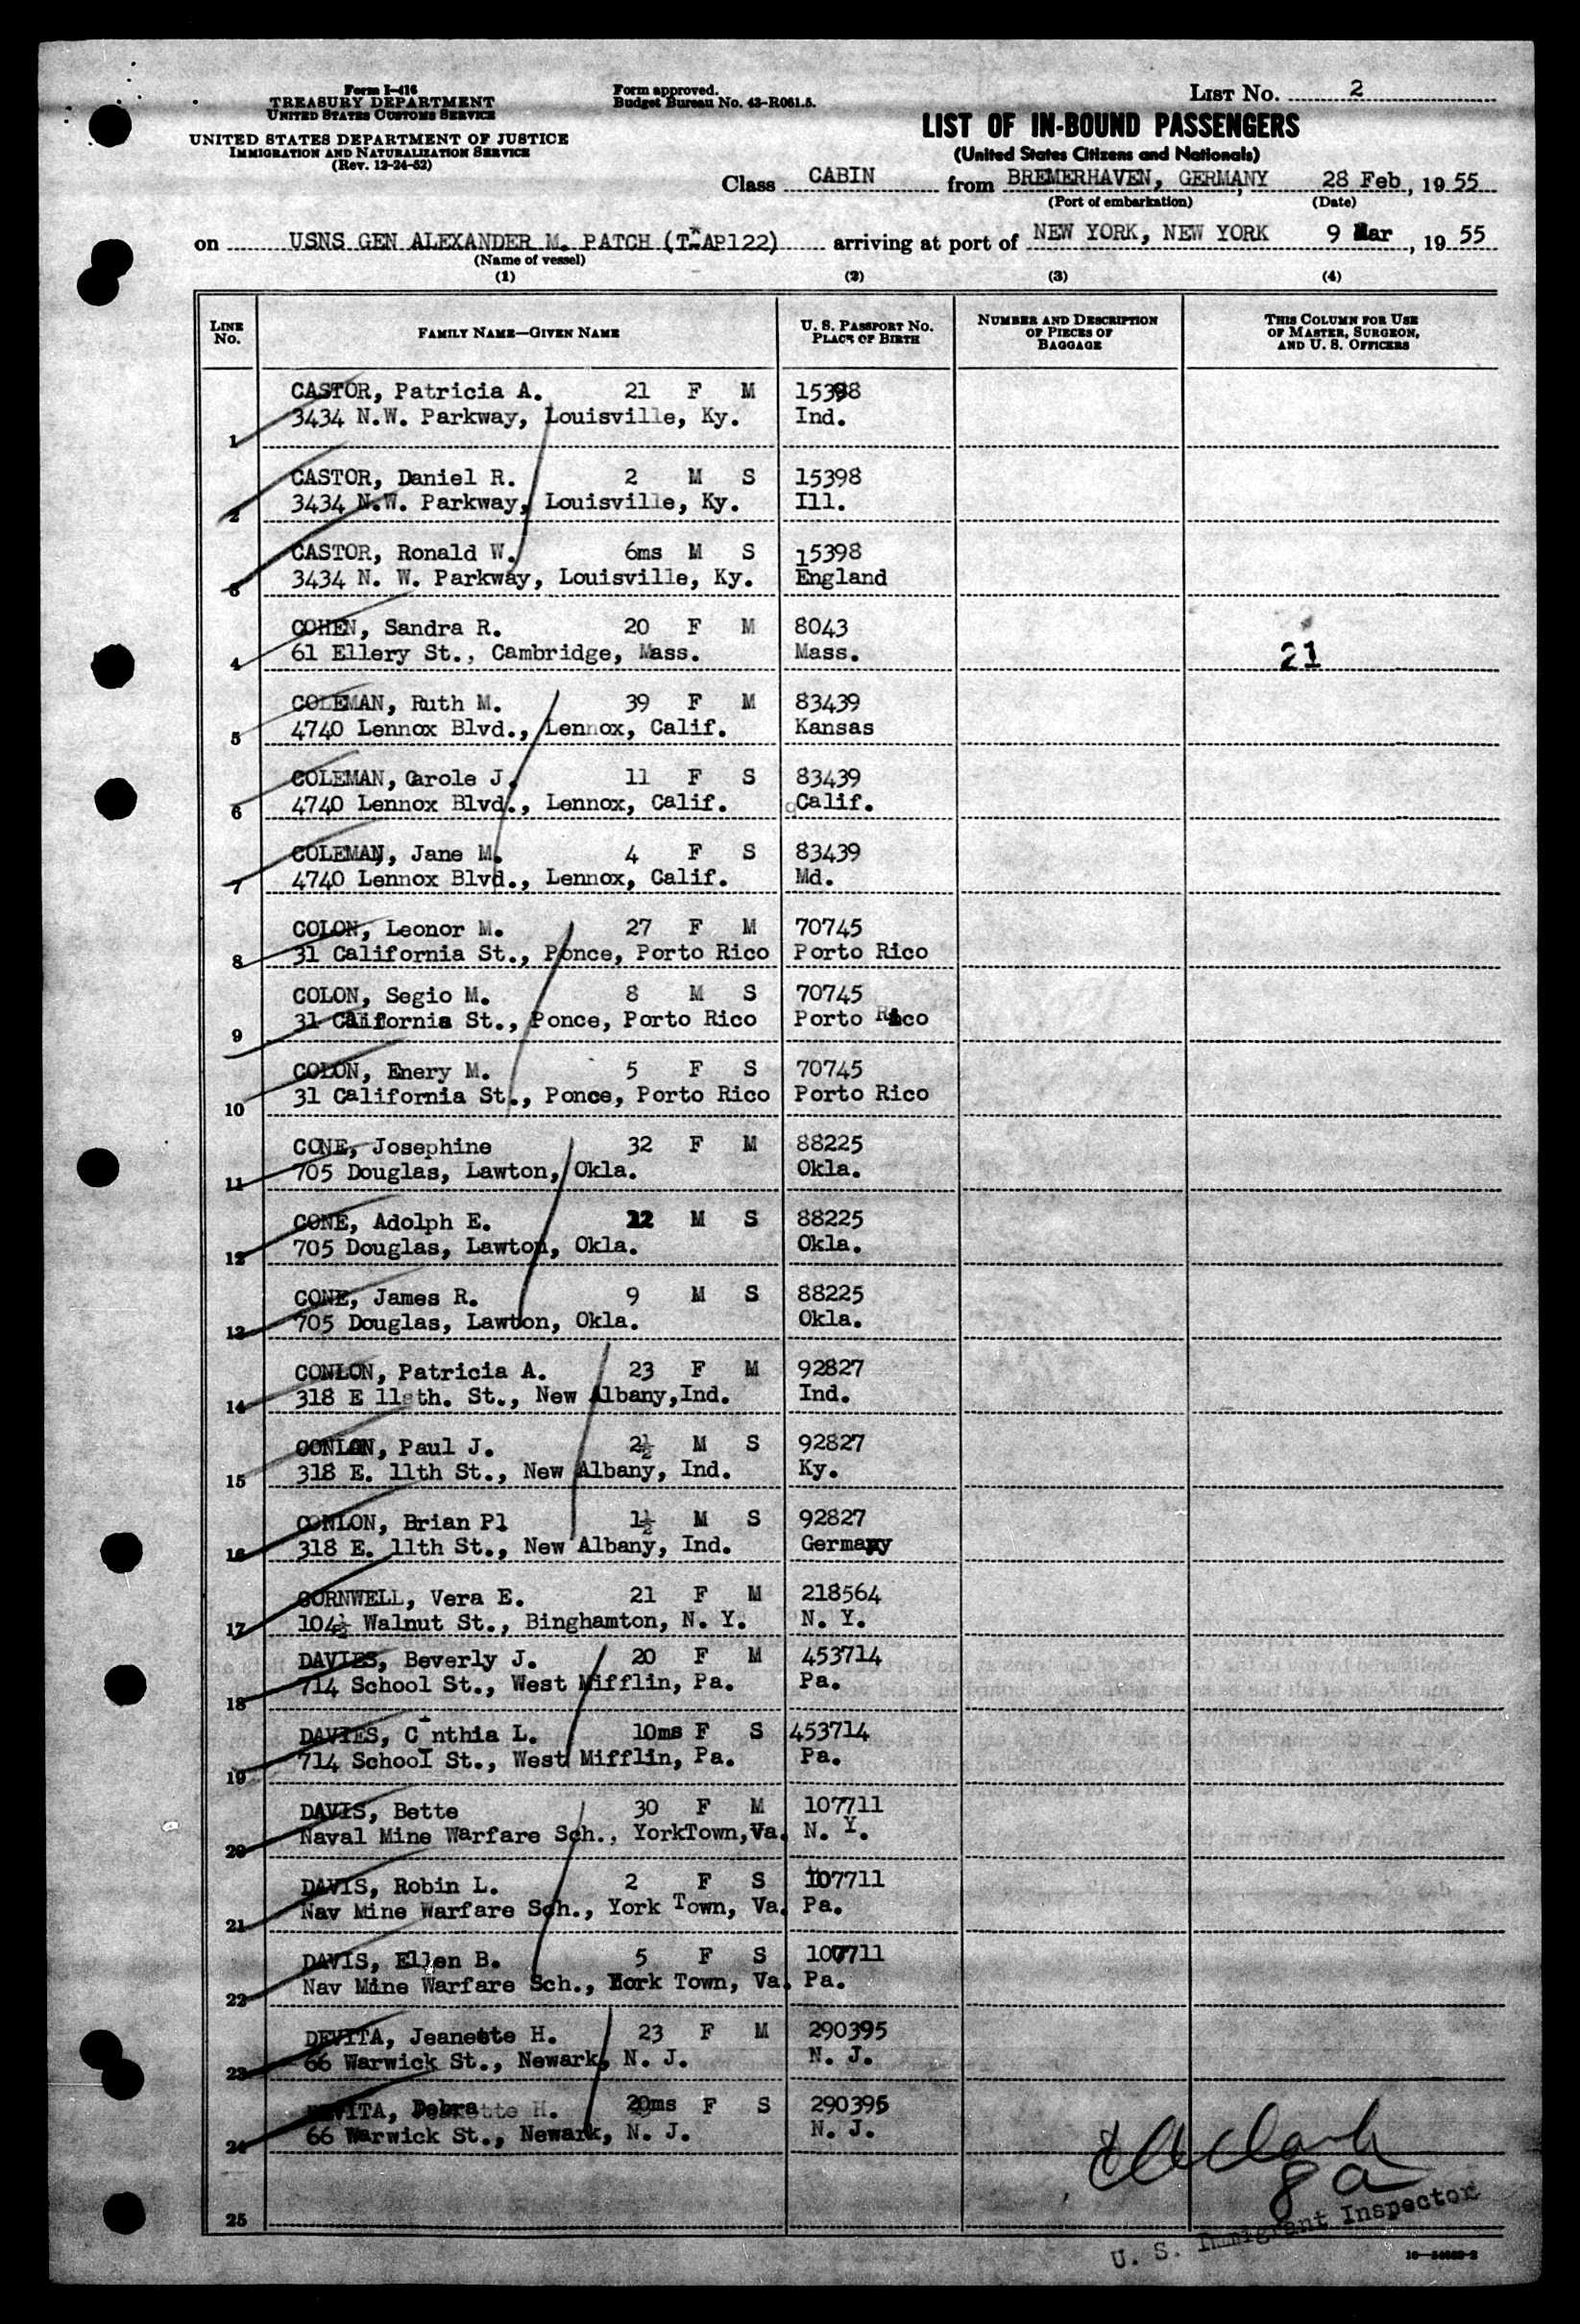 Form I-416
TREASURY DEPARTMENT
UNITED STATES CUSTOMS SERVICE
UNITED STATES DEPARTMENT OF JUSTICE
IMMIGRATION AND NATURALIZATION SERVICE
(Rev. 12-24-52)
Form approved.
Budget Bureau No. 43-R061.5.
LIST No. 2
LIST OF IN-BOUND PASSENGERS
(United States Citizens and Nationals)
Class CABIN from BREMERHAVEN, GERMANY 28 Feb, 1955
(Port of embarkation) (Date)
on USNS GEN ALEXANDER M. PATCH (T-AP122) arriving at port of NEW YORK, NEW YORK 9 Mar, 1955
(Name of vessel)
(1) (2) (3) (4)
LINE No. FAMILY NAME—GIVEN NAME U. S. PASSPORT No. PLACE OF BIRTH NUMBER AND DESCRIPTION OF PIECES OF BAGGAGE THIS COLUMN FOR USE OF MASTER, SURGEON, AND U. S. OFFICERS
CASTOR, Patricia A. 21 F M 15398
1 3434 N.W. Parkway, Louisville, Ky. Ind.
CASTOR, Daniel R. 2 M S 15398
2 3434 N.W. Parkway, Louisville, Ky. Ill.
CASTOR, Ronald W. 6ms M S 15398
3 3434 N. W. Parkway, Louisville, Ky. England
COHEN, Sandra R. 20 F M 8043
4 61 Ellery St., Cambridge, Mass. Mass. 21
COLEMAN, Ruth M. 39 F M 83439
5 4740 Lennox Blvd., Lennox, Calif. Kansas
COLEMAN, Carole J. 11 F S 83439
6 4740 Lennox Blvd., Lennox, Calif. Calif.
COLEMAN, Jane M. 4 F S 83439
7 4740 Lennox Blvd., Lennox, Calif. Md.
COLON, Leonor M. 27 F M 70745
8 31 California St., Ponce, Porto Rico Porto Rico
COLON, Segio M. 8 M S 70745
9 31 California St., Ponce, Porto Rico Porto Rico
COLON, Enery M. 5 F S 70745
10 31 California St., Ponce, Porto Rico Porto Rico
CONE, Josephine 32 F M 88225
11 705 Douglas, Lawton, Okla. Okla.
CONE, Adolph E. 12 M S 88225
12 705 Douglas, Lawton, Okla. Okla.
CONE, James R. 9 M S 88225
13 705 Douglas, Lawton, Okla. Okla.
CONLON, Patricia A. 23 F M 92827
14 318 E 11th. St., New Albany, Ind. Ind.
CONLON, Paul J. 2½ M S 92827
15 318 E. 11th St., New Albany, Ind. Ky.
CONLON, Brian Pl 1½ M S 92827
16 318 E. 11th St., New Albany, Ind. Germany
CORNWELL, Vera E. 21 F M 218564
17 104½ Walnut St., Binghamton, N. Y. N. Y.
DAVIES, Beverly J. 20 F M 453714
18 714 School St., West Mifflin, Pa. Pa.
DAVIES, Cinthia L. 10ms F S 453714
19 714 School St., West Mifflin, Pa. Pa.
DAVIS, Bette 30 F M 107711
20 Naval Mine Warfare Sch., YorkTown, Va. N. Y.
DAVIS, Robin L. 2 F S 107711
21 Nav Mine Warfare Sch., York Town, Va. Pa.
DAVIS, Ellen B. 5 F S 107711
22 Nav Mine Warfare Sch., York Town, Va. Pa.
DEVITA, Jeanette H. 23 F M 290395
23 66 Warwick St., Newark, N. J. N. J.
DEVITA, Debra H. 20ms F S 290395
24 66 Warwick St., Newark, N. J. N. J.
25
U. S. Immigrant Inspector